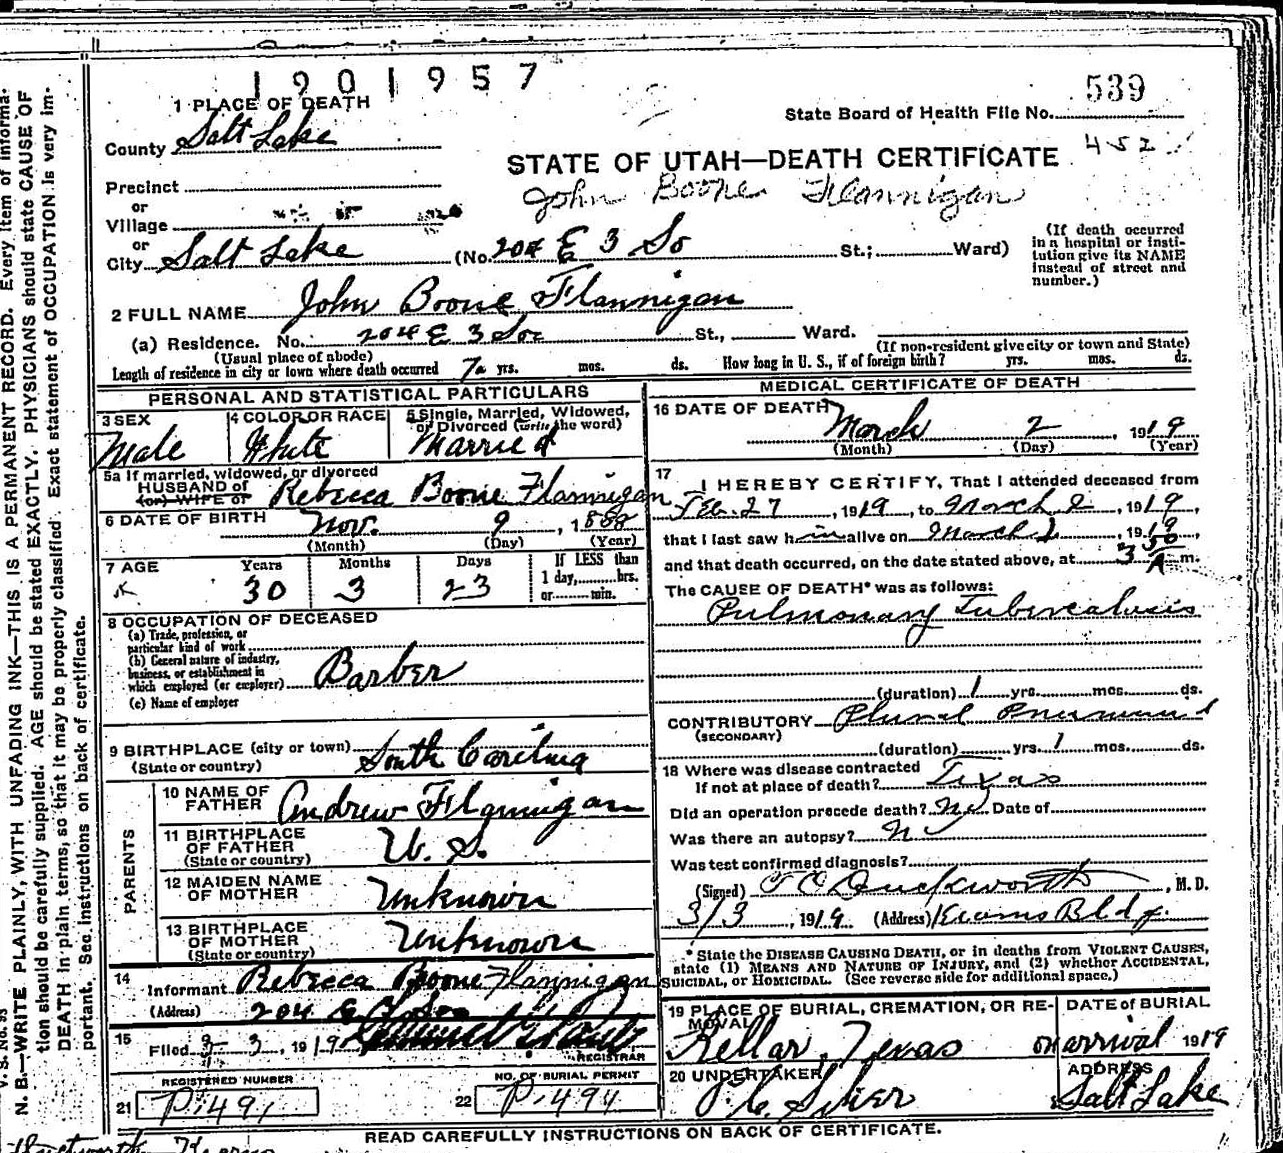 1901957
539
1 PLACE OF DEATH
State Board of Health File No.
County Salt Lake
452
STATE OF UTAH—DEATH CERTIFICATE
Precinct
John Boone Flannigan
or
Village
or
City Salt Lake (No. 204 E 3 So St.; Ward)
(If death occurred
in a hospital or insti-
tution give its NAME
instead of street and
number.)
2 FULL NAME John Boone Flannigan
(a) Residence. No. 204 E 3 So St., Ward.
(Usual place of abode)
(If non-resident give city or town and State)
Length of residence in city or town where death occurred yrs. mos. ds. How long in U. S., if of foreign birth? yrs. mos. ds.
PERSONAL AND STATISTICAL PARTICULARS
3 SEX
Male
4 COLOR OR RACE
White
5 Single, Married, Widowed,
or Divorced (write the word)
Married
5a If married, widowed, or divorced
HUSBAND of
(or) WIFE of
Rebecca Boone Flannigan
6 DATE OF BIRTH
Nov. 9, 1888
(Month) (Day) (Year)
7 AGE Years Months Days
30 3 23
If LESS than
1 day, hrs.
or min.
8 OCCUPATION OF DECEASED
(a) Trade, profession, or
particular kind of work
(b) General nature of industry,
business, or establishment in
which employed (or employer) Barber
(c) Name of employer
9 BIRTHPLACE (city or town) South Carolina
(State or country)
PARENTS
10 NAME OF
FATHER Andrew Flannigan
11 BIRTHPLACE
OF FATHER U. S.
(State or country)
12 MAIDEN NAME
OF MOTHER Unknown
13 BIRTHPLACE
OF MOTHER Unknown
(State or country)
14
Informant Rebecca Boone Flannigan
(Address) 204 E 3 So
15
Filed 3-3, 1919
REGISTRAR
REGISTERED NUMBER
21 P.1491
NO. OF BURIAL PERMIT
22 P.1491
MEDICAL CERTIFICATE OF DEATH
16 DATE OF DEATH
March 2, 1919
(Month) (Day) (Year)
17
I HEREBY CERTIFY, That I attended deceased from
Feb. 27, 1919, to March 2, 1919,
that I last saw him alive on March 1, 1919,
and that death occurred, on the date stated above, at 3 50 A m.
The CAUSE OF DEATH* was as follows:
Pulmonary Tuberculosis
(duration) 1 yrs. mos. ds.
CONTRIBUTORY
(SECONDARY)
(duration) yrs. 1 mos. ds.
18 Where was disease contracted
If not at place of death? Texas
Did an operation precede death? No Date of
Was there an autopsy? No
Was test confirmed diagnosis?
(Signed) Duckworth, M. D.
3/3 1919 (Address) Kearns Bldg.
* State the DISEASE CAUSING DEATH, or in deaths from VIOLENT CAUSES,
state (1) MEANS AND NATURE OF INJURY, and (2) whether ACCIDENTAL,
SUICIDAL, or HOMICIDAL. (See reverse side for additional space.)
19 PLACE OF BURIAL, CREMATION, OR RE-
MOVAL
Kellar, Texas
DATE of BURIAL
on arrival 1919
20 UNDERTAKER
ADDRESS
Salt Lake
READ CAREFULLY INSTRUCTIONS ON BACK OF CERTIFICATE.
V. S. No. 95
N. B.—WRITE PLAINLY, WITH UNFADING INK—THIS IS A PERMANENT RECORD. Every item of informa-
tion should be carefully supplied. AGE should be stated EXACTLY. PHYSICIANS should state CAUSE OF
DEATH in plain terms, so that it may be properly classified. Exact statement of OCCUPATION is very im-
portant. See instructions on back of certificate.